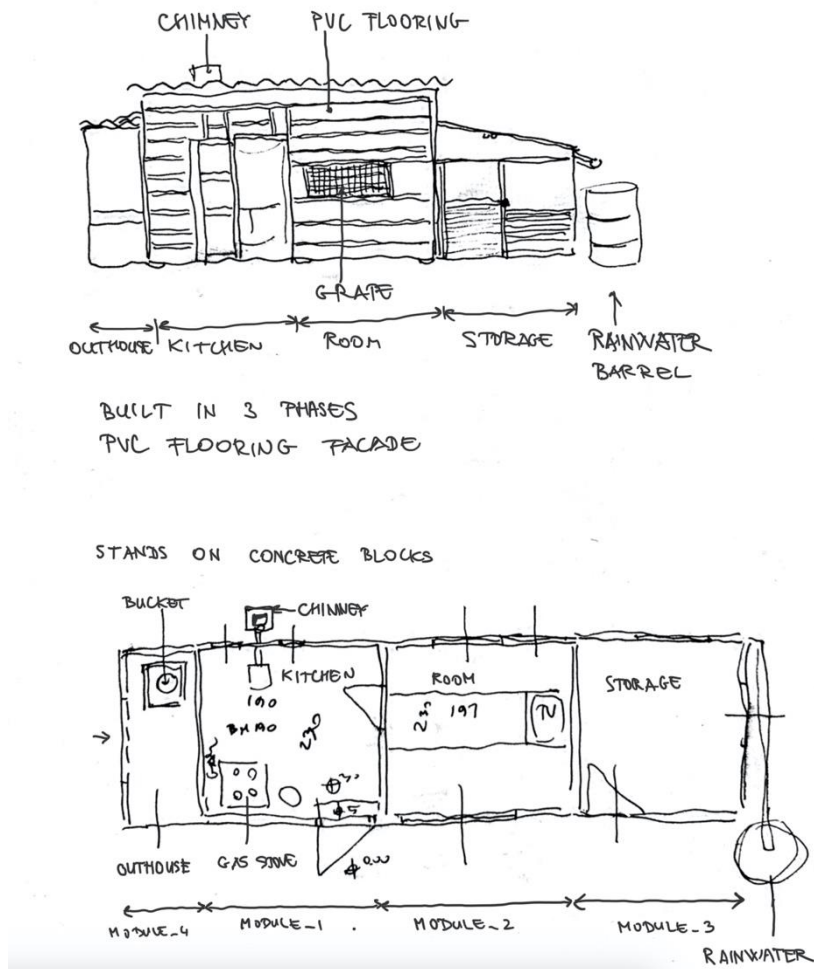 CHIMNEY PVC FLOORING
GRATE
OUTHOUSE KITCHEN ROOM STORAGE RAINWATER
BARREL
BUILT IN 3 PHASES
PVC FLOORING FACADE
STANDS ON CONCRETE BLOCKS
BUCKET CHIMNEY
KITCHEN ROOM STORAGE
190 230 197
230
OUTHOUSE GAS STOVE
MODULE_4 MODULE_1 MODULE_2 MODULE_3
RAINWATER